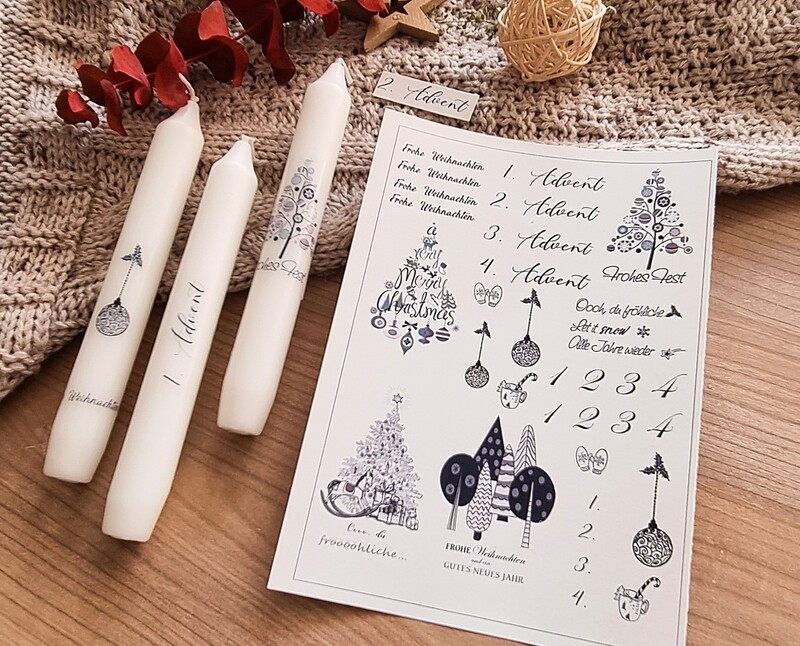 2. Advent
Frohe Weihnachten
Frohe Weihnachten
Frohe Weihnachten
Frohe Weihnachten
1. Advent
2. Advent
3. Advent
4. Advent
Frohes Fest
a
very
Merry
Christmas
Oooh, du fröhliche
Let it snow
Alle Jahre wieder
1 2 3 4
1 2 3 4
1.
2.
3.
4.
Oooo, du
froooohliche...
FROHE Weihnachten
und ein
GUTES NEUES JAHR
Weihnachten
1. Advent
Frohes Fest